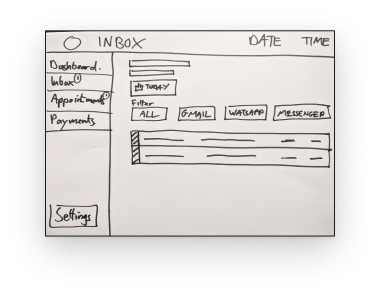 INBOX DATE TIME
Dashboard.
Inbox 1
Appointments 1
Payments
TODAY
Filter
ALL GMAIL WATSAPP MESSENGER
Settings